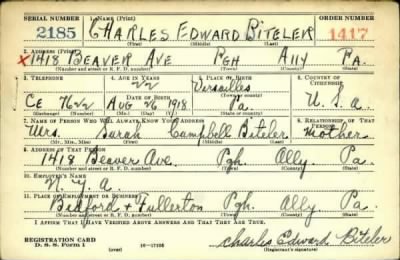 SERIAL NUMBER 1. NAME (Print) ORDER NUMBER
2185 CHARLES EDWARD BITELER 1417
(First) (Middle) (Last)
2. ADDRESS (Print)
X 1418 BEAVER AVE PGH Ally PA.
(Number and street or R. F. D. number) (Town) (County) (State)
3. TELEPHONE 4. AGE IN YEARS 5. PLACE OF BIRTH 6. COUNTRY OF CITIZENSHIP
22 Versailles
DATE OF BIRTH (Town or county)
Ce 7622 Aug 26 1918 Pa. U.S.a.
(Exchange) (Number) (Mo.) (Day) (Yr.) (State or country)
7. NAME OF PERSON WHO WILL ALWAYS KNOW YOUR ADDRESS 8. RELATIONSHIP OF THAT PERSON
Mrs. Sarah Campbell Biteler Mother
(Mr., Mrs., Miss) (First) (Middle) (Last)
9. ADDRESS OF THAT PERSON
1418 Beaver Ave. Pgh. Ally. Pa.
(Number and street or R. F. D. number) (Town) (County) (State)
10. EMPLOYER'S NAME
N.Y.A.
11. PLACE OF EMPLOYMENT OR BUSINESS
Bidford + Fullerton Pgh. Ally. Pa.
(Number and street or R. F. D. number) (Town) (County) (State)
I AFFIRM THAT I HAVE VERIFIED ABOVE ANSWERS AND THAT THEY ARE TRUE.
REGISTRATION CARD
D. S. S. Form 1 (over) 16—17105 Charles Edward Biteler
(Registrant's signature)